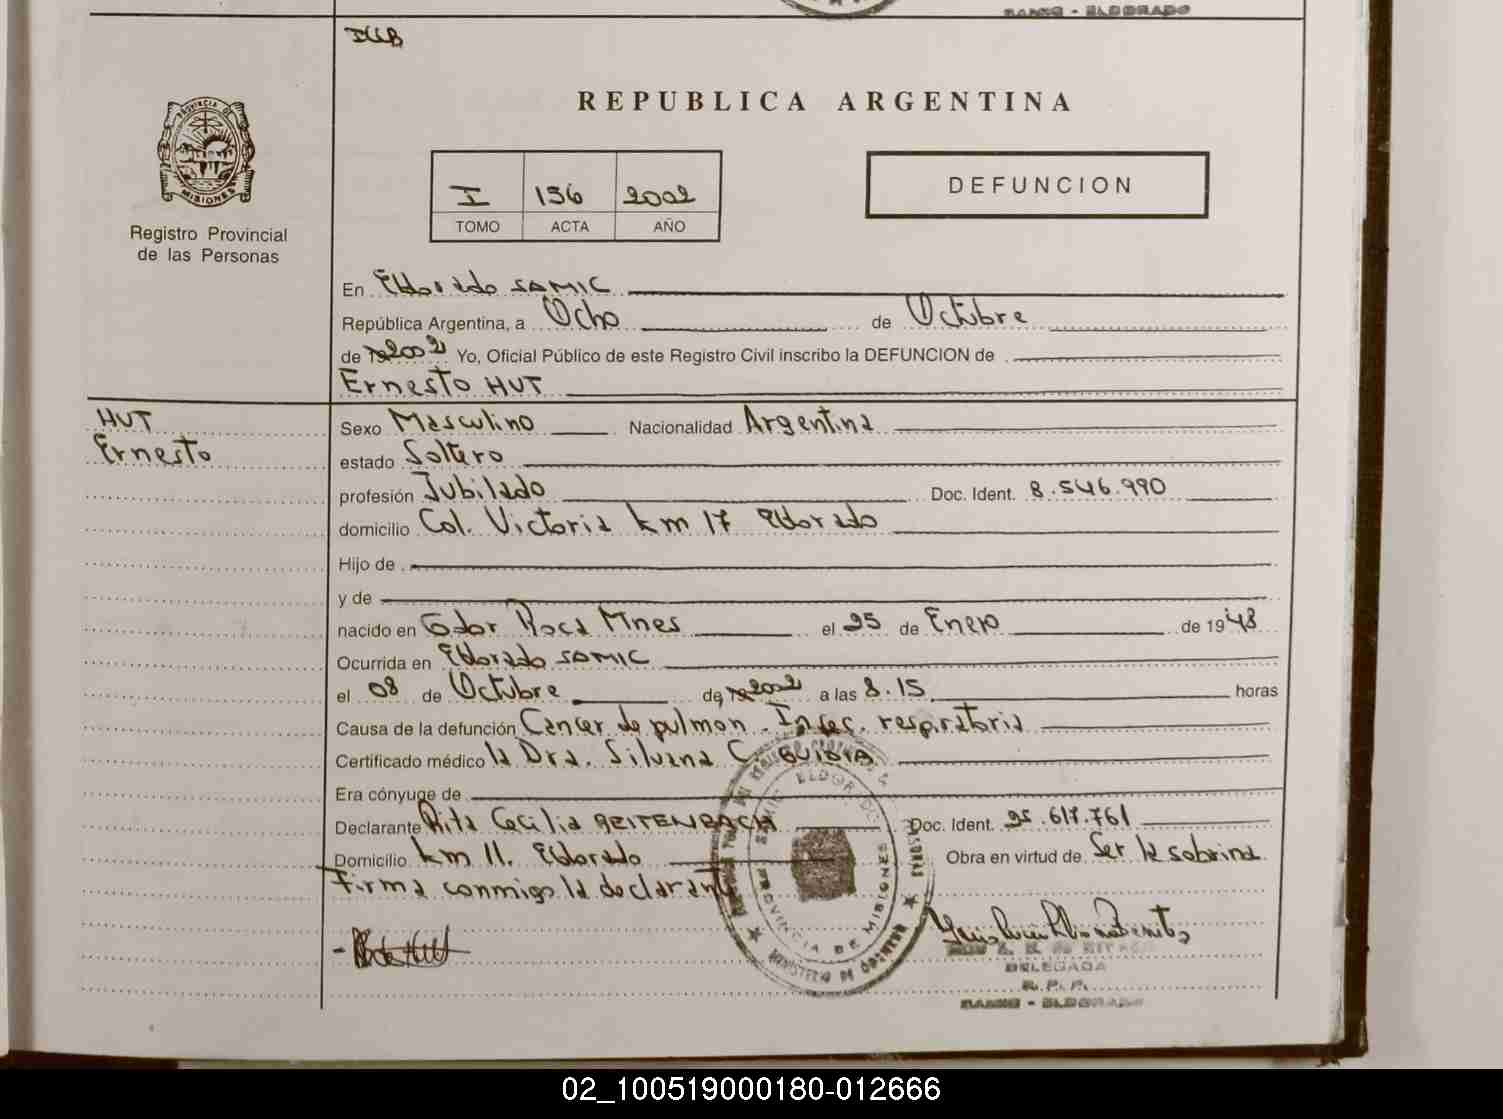 SAMIC - ELDORADO
REPUBLICA ARGENTINA
PROVINCIA DE
MISIONES
Registro Provincial
de las Personas
I 156 2002
TOMO ACTA AÑO
DEFUNCION
En Eldorado SAMIC
República Argentina, a Ocho de Octubre
de 2002 Yo, Oficial Público de este Registro Civil inscribo la DEFUNCION de
Ernesto HUT
HUT
Ernesto
Sexo Masculino Nacionalidad Argentina
estado Soltero
profesión Jubilado Doc. Ident. 8.546.990
domicilio Col. Victoria km 17 Eldorado
Hijo de
y de
nacido en Gdor Roca Mnes el 25 de Enero de 1948
Ocurrida en Eldorado SAMIC
el 08 de Octubre de 2002 a las 8.15 horas
Causa de la defunción Cancer de pulmon - Infec. respiratoria
Certificado médico la Dra. Silvana C. GUIDIA
Era cónyuge de
Declarante Rita Cecilia REITENBACH Doc. Ident. 25.617.761
Domicilio km 11. Eldorado Obra en virtud de Ser la sobrina
Firma conmigo la declarante
SAMIC ELDORADO
PROVINCIA DE MISIONES
MINISTERIO DE GOBIERNO
DELEGADA
R. P. P.
SAMIC - ELDORADO
02_100519000180-012666